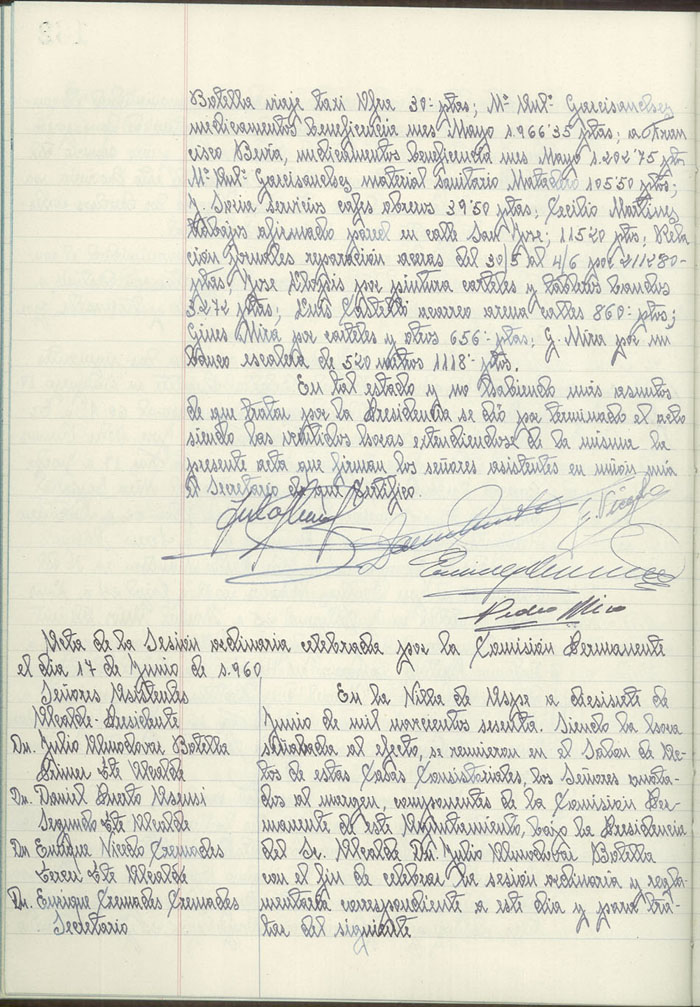 Botella viaje taxi Ibra 30- ptas; Mª Antª Garcisanchez
medicamentos beneficencia mes Mayo 1.966'35 ptas; a Fran
cisco Beviá, medicamentos beneficencia mes Mayo 1.202'75 ptas
Mª Antª Garcisanchez material sanitario Matadero 105'50 ptas;
J. Soria servicios cafes obreros 39'50 ptas; Cecilio Martinez
trabajos afirmado pared en calle San Jose; 115'20 ptas; Rela
ción jornales reparación aceras del 30/5 al 4/6 por 2112'80-
ptas; Jose por pintura carteles y tableros blancos
3.272 ptas; Luis Castelló acarreo arena calles 860- ptas;
Gines Mira por carteles y otros 656- ptas; G. Mira por un
banco escalera de 5'20 metros 1118'- ptas.
En tal estado y no habiendo más asuntos
de que tratar por la Presidencia se dió por terminado el acto
siendo las veintidos horas extendiendose de la misma la
presente acta que firman los señores asistentes en unión mia
el Secretario de que certifico.
Pedro Mira
Acta de la Sesión ordinaria celebrada por la Comisión Permanente
el dia 17 de Junio de 1.960
Señores Asistentes
Alcalde-Presidente
Dn. Julio Almodovar Botella
Primer Tte Alcalde
Dn. Daniel Puerto Asensi
Segundo Tte Alcalde
Dn Enrique Vicedo Cremades
Tercer Tte Alcalde
Dn. Enrique Cremades Cremades
Secretario
En la Villa de Aspe a diesisiete de
Junio de mil novecientos sesenta. Siendo la hora
señalada al efecto, se reunieron en el Salon de Ac-
tos de estas Casas Consistoriales, los Señores anota-
dos al margen, componentes de la Comisión Per-
manente de este Ayuntamiento, bajo la Presidencia
del Sr. Alcalde Dn. Julio Almodovar Botella
con el fin de celebrar la sesión ordinaria y regla-
mentaria correspondiente a este dia y para tra-
tar del siguiente